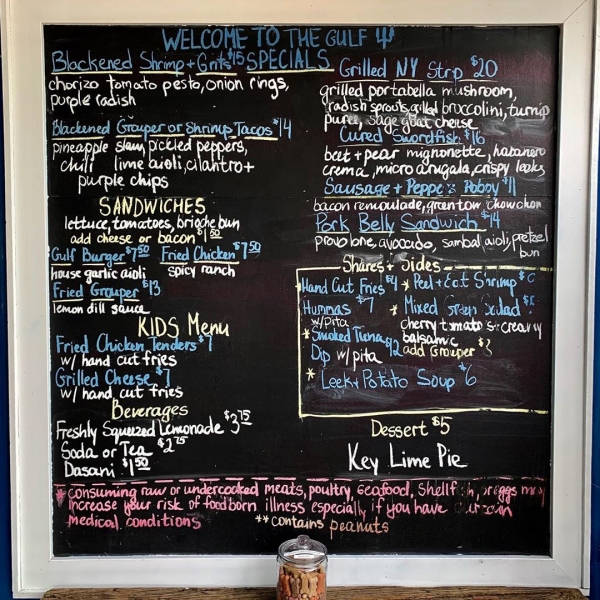 WELCOME TO THE GULF
SPECIALS
Blackened Shrimp + Grits $15
chorizo tomato pesto, onion rings,
purple radish
Blackened Grouper or Shrimp Tacos $14
pineapple slaw, pickled peppers,
chili lime aioli, cilantro +
purple chips
SANDWICHES
lettuce, tomatoes, brioche bun
add cheese or bacon $1.50
Gulf Burger $7.50 Fried Chicken $7.50
house garlic aioli spicy ranch
Fried Grouper $13
lemon dill sauce
KIDS Menu
Fried Chicken Tenders $7
w/ hand cut fries
Grilled Cheese $7
w/ hand cut fries
Beverages
Freshly Squeezed Lemonade $3.75
Soda or Tea $2.75
Dasani $1.50
Grilled NY Strip $20
grilled portabella mushroom,
radish sprouts, grilled broccolini, turnip
puree, sage goat cheese
Cured Swordfish $16
beet + pear mignonette, habanero
crema, micro arugala, crispy leeks
Sausage + Peppe s Poboy $11
bacon remoulade, green tom chowchow
Pork Belly Sandwich $14
provolone, avocado, sambal aioli, pretzel
bun
Shares + Sides
Hand Cut Fries $4
Hummas $7
w/ Pita
* Smoked Tuna
Dip w/ pita $12
* Peel + Eat Shrimp
* Mixed Green Salad
cherry tomatoes creamy
balsamic
add Grouper
* Leek + Potato Soup $6
Dessert $5
Key Lime Pie
* consuming raw or undercooked meats, poultry, seafood, shellfish, or eggs may
increase your risk of foodborn illness especially if you have certain
medical conditions
** contains peanuts